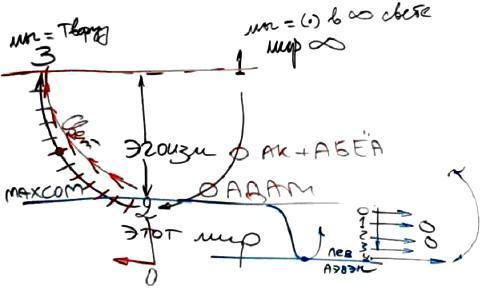 мы = Творцу
мы = (.) в ∞ свете
мир ∞
3
1
свет
эгоизм
АК + АБЕЯ
МАХСОМ
АДАМ
2
ЭТОТ мир
0
ЛЕВ
АЭВЭН
0
1
2
3
4
0
0